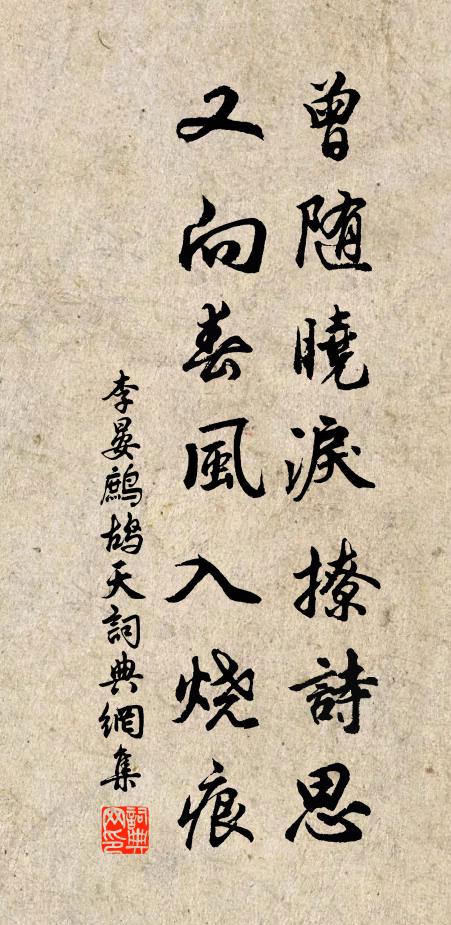 曾随曉淚撩詩思
又向春風入烧痕
李晏鷓鴣天詞典網集
詞典网印